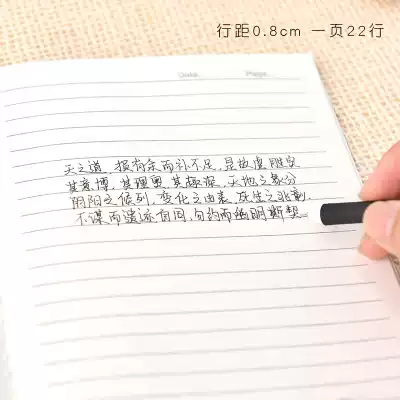 行距0.8cm 一页22行
Date: Page:
天之道,损有余而补不足,是故虚胜实
其意博,其理奥,其趣深,天地之象分
阴阳之候列,变化之由表,死生之兆彰,
不谋而遗迹自同,勿约而幽明斯契